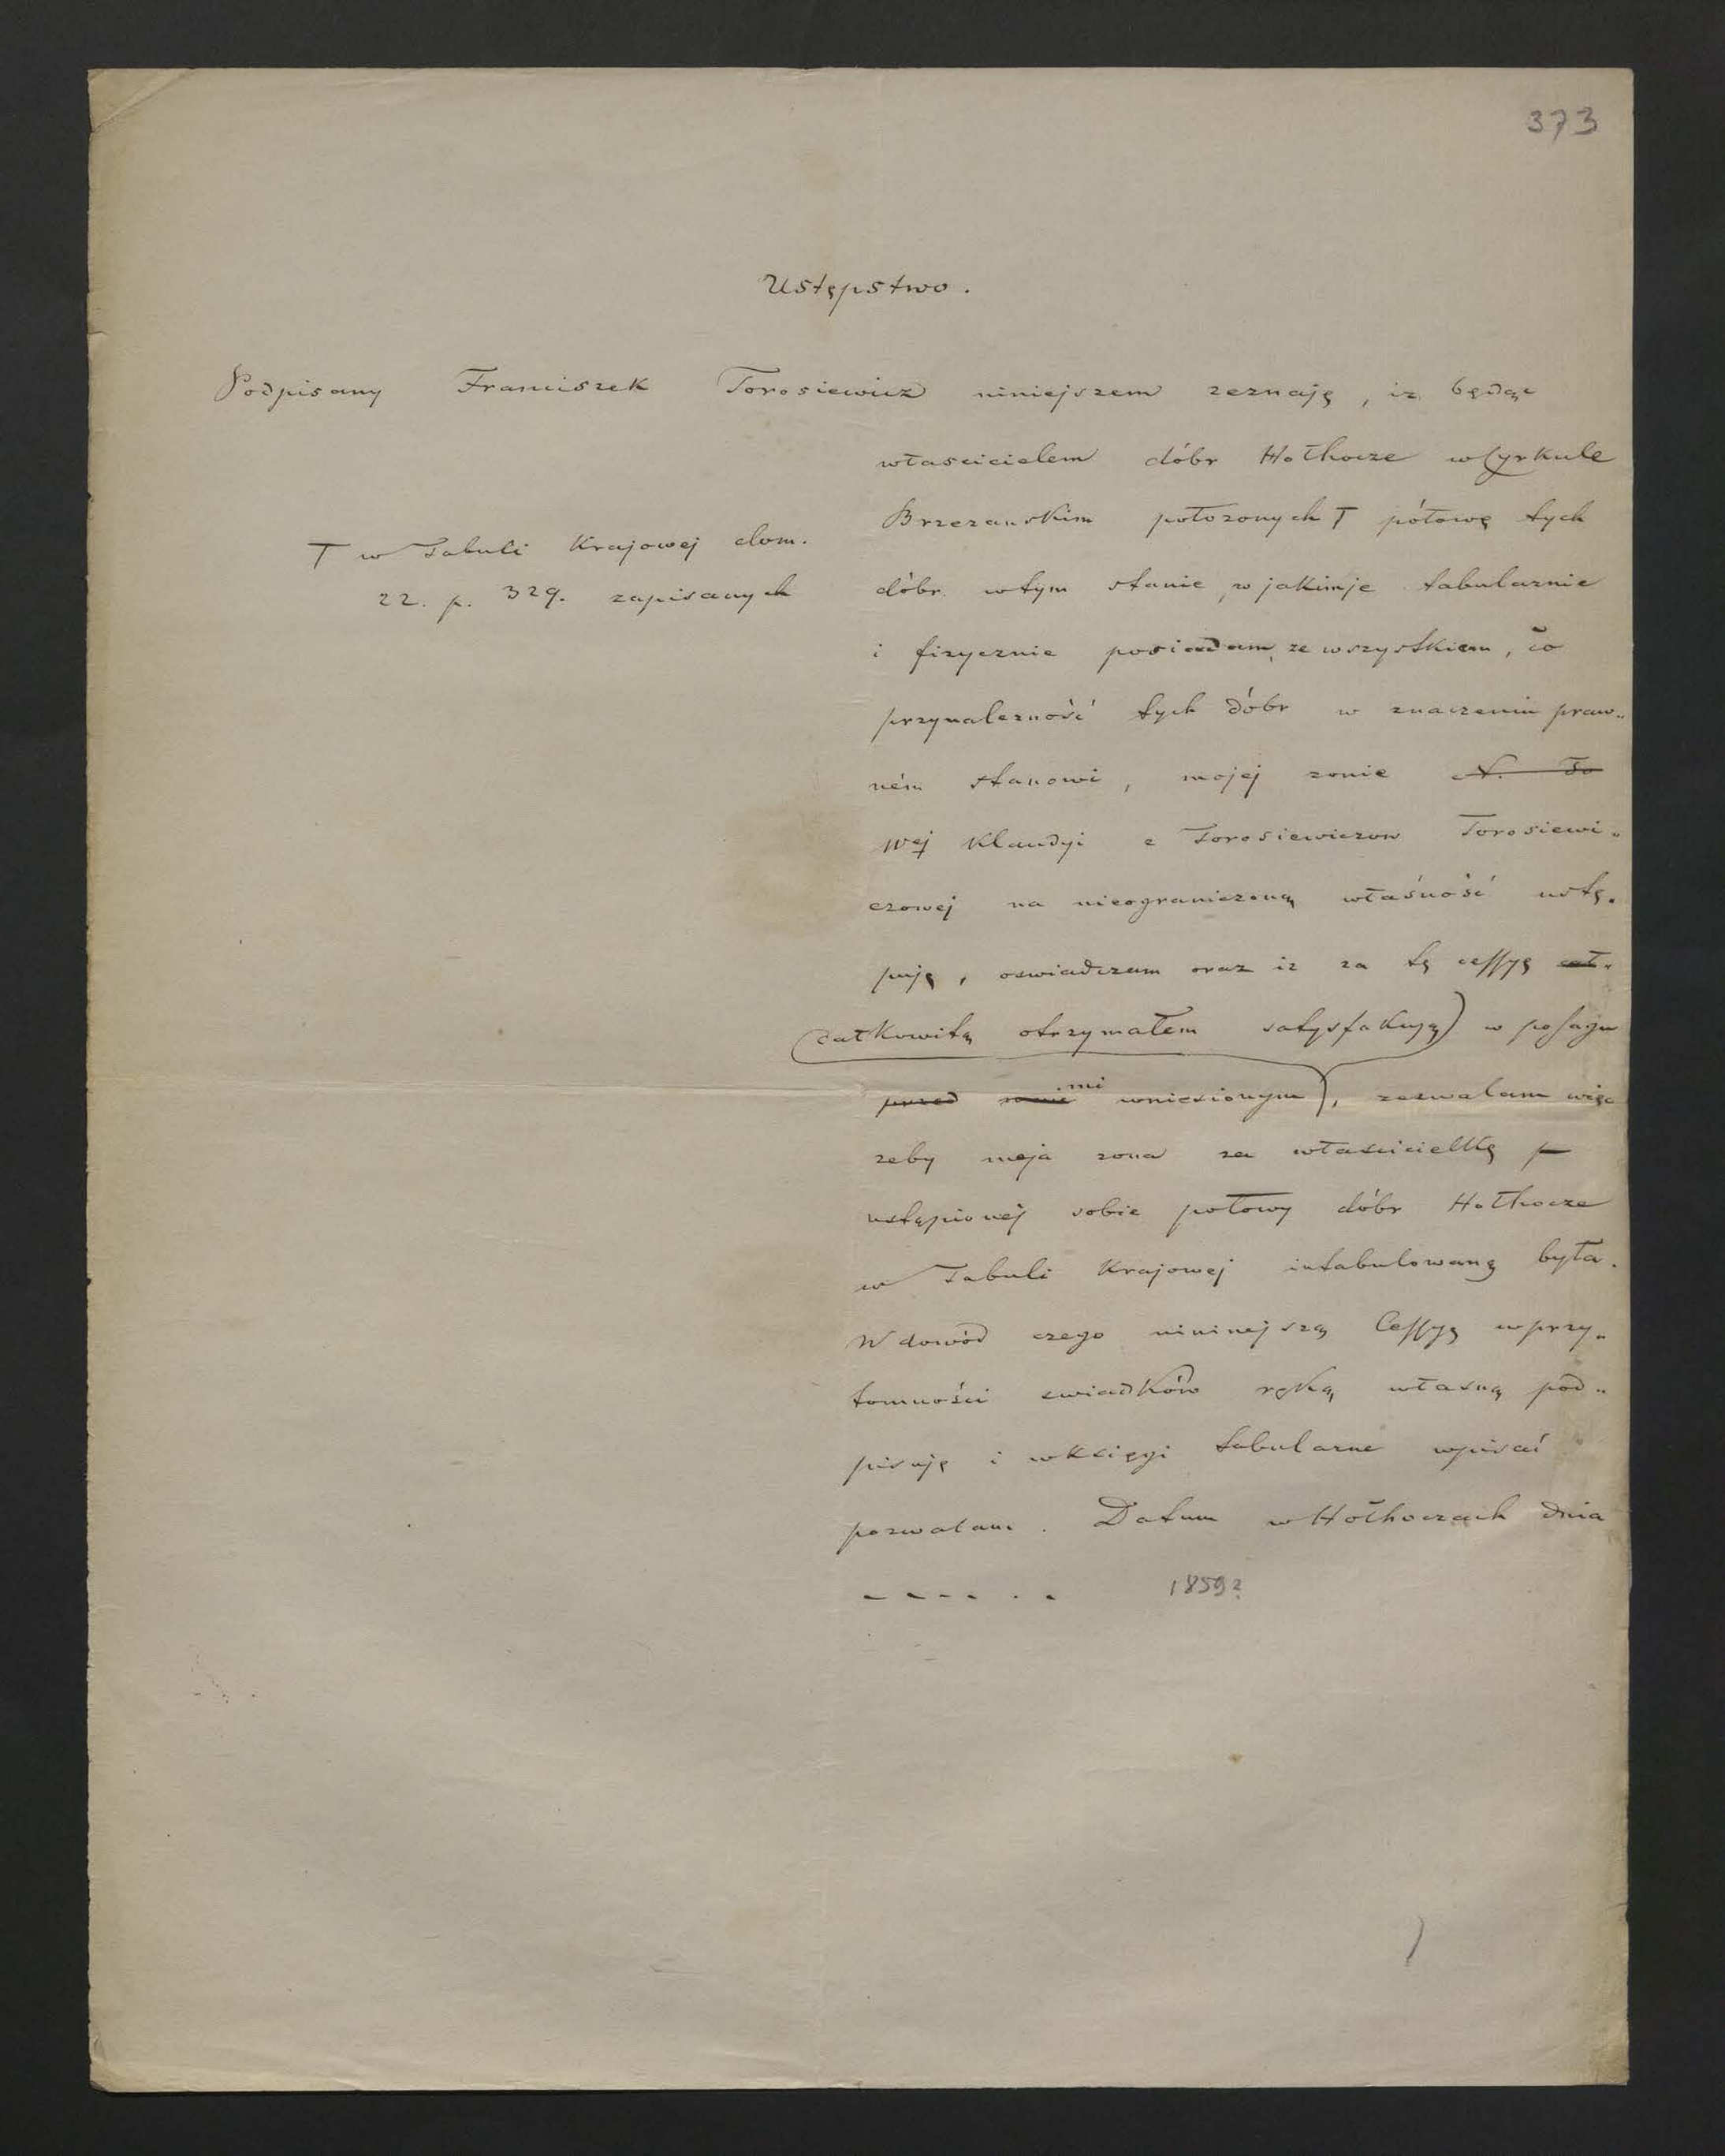 373
Ustępstwo.
Podpisany Franciszek Torosiewicz niniejszem zeznaję, iz będąc
własicielem dóbr Hołhocze w Cyrkule
Brzezanskim połozonych T półowę tych
T w Tabuli Krajowej dom.
22. p. 329. zapisanych
dóbr w tym stanie, w jakim je tabularnie
i fizycznie posiadam, ze wszystkiem, co
przynalezność tych dóbr w znaczeniu praw„
ném stanowi, mojej zonie N. To
Wej Klaudyi z Torosiewiczow Torosiewi„
czowej na nieograniczoną własność ustę„
puję, oswiadczam oraz iz za tę cessyę cał„
całkowitą otrzymałem satysfakcyą) w posagu
przed mi wniesionym), zezwalam więc
zeby moja zona za włascicielkę p
ustąpionej sobie połowy dóbr Hołhocze
w Tabuli Krajowej intabulowaną była.
W dowód czego nininejszą Cessyę w przy„
tomności swiadków ręką własną pod„
pisuję i w księgi tabularne wpisać
pozwalam. Datum w Hołhoczach dnia
- - - - . - 1859?